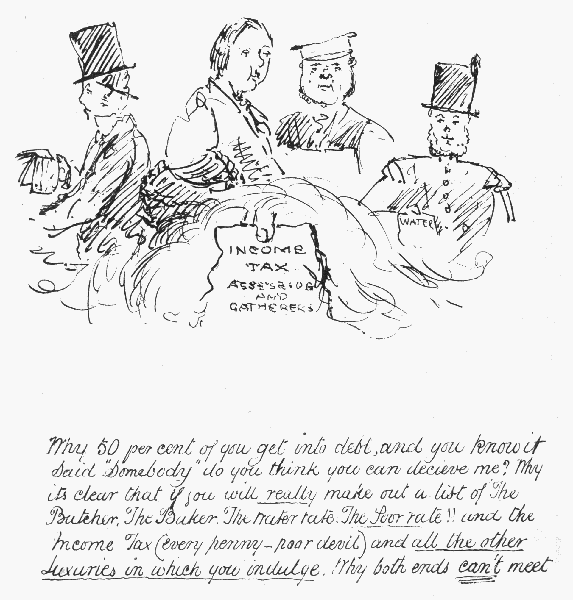 WATER
INCOME
TAX
ASSESSING
AND
GATHERERS
Why 50 per cent of you get into debt, and you know it
Said "Somebody" do you think you can decieve me? Why
its clear that if you will really make out a list of The
Butcher, The Baker. The water rate. The Poor rate!! and the
Income Tax (every penny - poor devil) and all the other
Luxuries in which you indulge. Why both ends can't meet